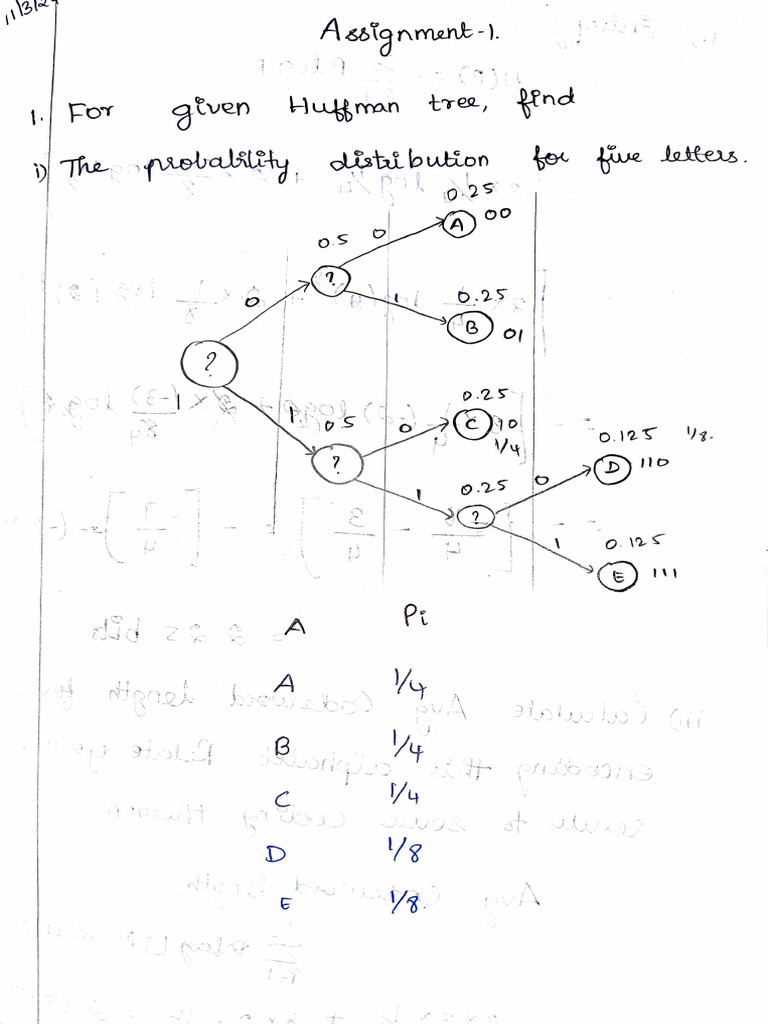 11/3/2
Assignment-1.
1. For given Huffman tree, find
i) The probability distribution for five letters.
0.25
0.5 0 A 00
?
0 1 0.25
B 01
?
1 0.25
1 0.5 0 C 10
1/4
? 0.125 1/8.
1 0.25 0 D 110
?
1 0.125
E 111
A Pi
A 1/4
B 1/4
C 1/4
D 1/8
E 1/8.